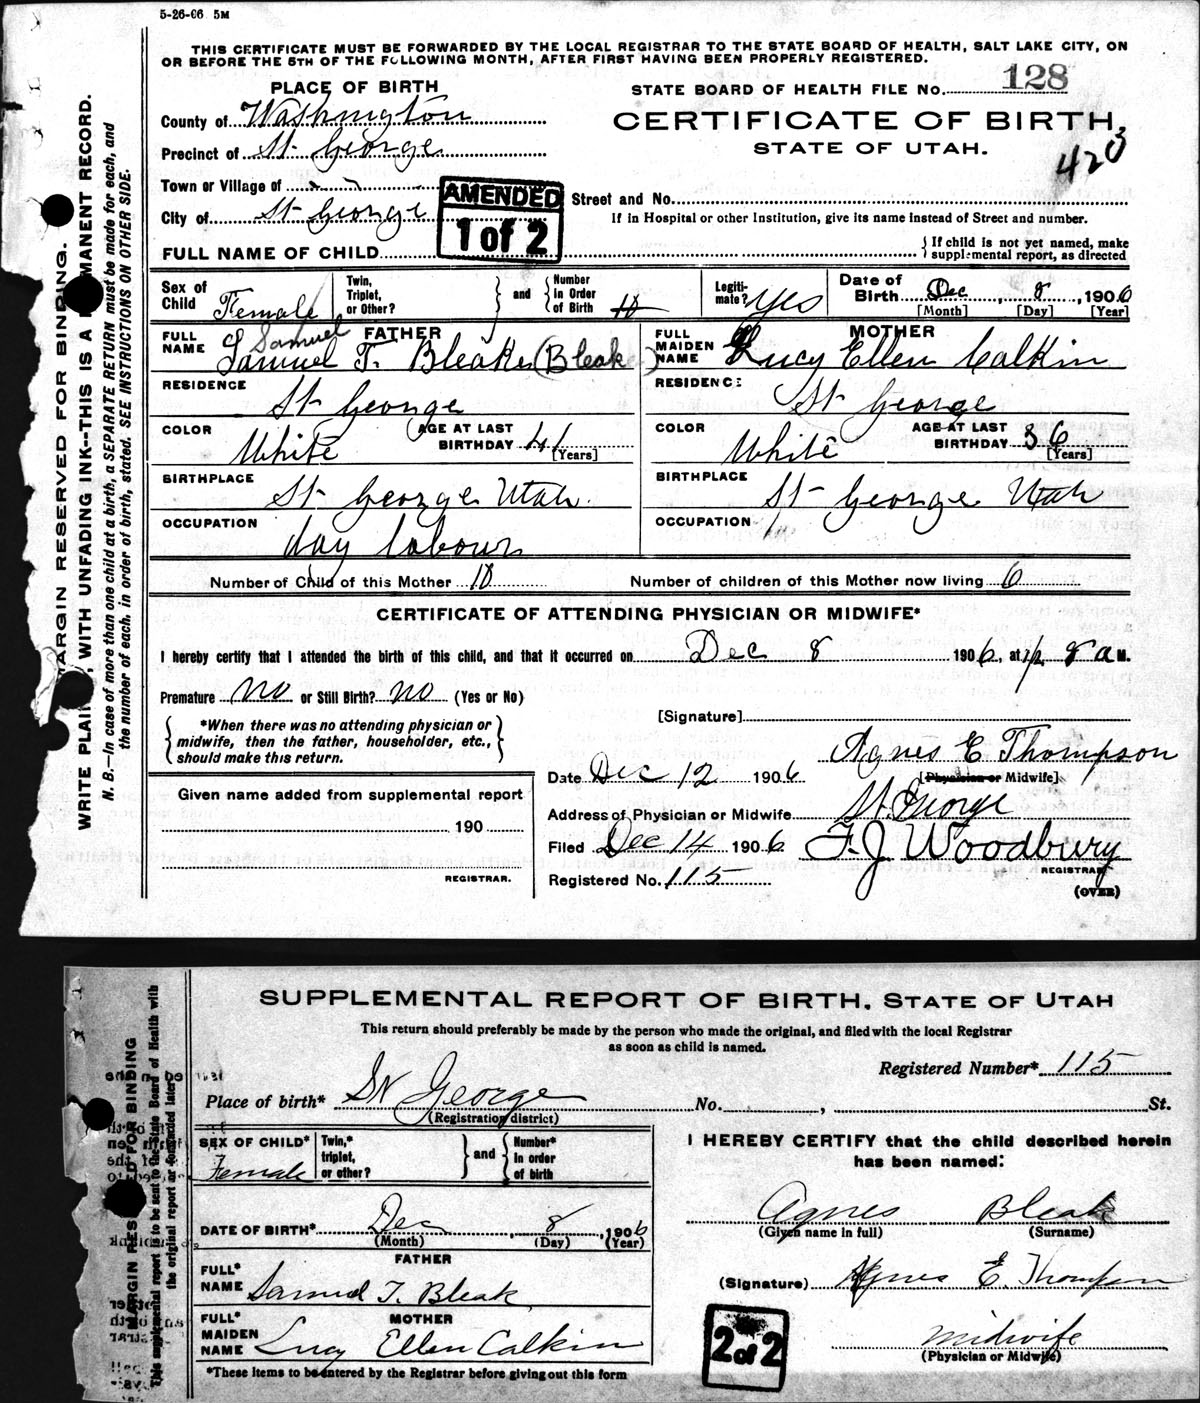 5-26-06 5M
THIS CERTIFICATE MUST BE FORWARDED BY THE LOCAL REGISTRAR TO THE STATE BOARD OF HEALTH, SALT LAKE CITY, ON
OR BEFORE THE 5TH OF THE FOLLOWING MONTH, AFTER FIRST HAVING BEEN PROPERLY REGISTERED.
PLACE OF BIRTH
STATE BOARD OF HEALTH FILE NO. 128
County of Washington
CERTIFICATE OF BIRTH,
Precinct of St George
STATE OF UTAH.
Town or Village of
AMENDED
1 of 2
Street and No.
City of St George
If in Hospital or other Institution, give its name instead of Street and number.
FULL NAME OF CHILD
{ If child is not yet named, make
supplemental report, as directed
Sex of Child Female
Twin, Triplet, or Other?
and
Number in Order of Birth 10
Legiti-mate? yes
Date of Birth Dec 8, 1906
[Month] [Day] [Year]
FATHER
FULL NAME Samuel T. Bleake (Bleak)
Samuel
MOTHER
FULL MAIDEN NAME Lucy Ellen Calkin
RESIDENCE St George
RESIDENCE St George
COLOR White
AGE AT LAST BIRTHDAY 41 [Years]
COLOR White
AGE AT LAST BIRTHDAY 36 [Years]
BIRTHPLACE St George Utah.
BIRTHPLACE St George Utah
OCCUPATION day labour
OCCUPATION
Number of Child of this Mother 10
Number of children of this Mother now living 6
CERTIFICATE OF ATTENDING PHYSICIAN OR MIDWIFE*
I hereby certify that I attended the birth of this child, and that it occurred on Dec 8 1906, at 8 a M.
Premature no or Still Birth? no (Yes or No)
[Signature]
{ *When there was no attending physician or
midwife, then the father, householder, etc.,
should make this return. }
Agnes E Thompson
Date Dec 12 1906
[Physician or Midwife]
Given name added from supplemental report
Address of Physician or Midwife St. George
190
Filed Dec 14 1906 F. J. Woodbury
REGISTRAR.
REGISTRAR
Registered No. 115
(OVER)
MARGIN RESERVED FOR BINDING.
WRITE PLAINLY, WITH UNFADING INK--THIS IS A PERMANENT RECORD.
N. B.—In case of more than one child at a birth, a SEPARATE RETURN must be made for each, and
the number of each, in order of birth, stated. SEE INSTRUCTIONS ON OTHER SIDE.
SUPPLEMENTAL REPORT OF BIRTH, STATE OF UTAH
This return should preferably be made by the person who made the original, and filed with the local Registrar
as soon as child is named.
Registered Number* 115
Place of birth* St George No. , St.
(Registration district)
SEX OF CHILD* Female
Twin,* triplet, or other?
and
Number* in order of birth
I HEREBY CERTIFY that the child described herein
has been named:
DATE OF BIRTH* Dec 8, 1906
(Month) (Day) (Year)
Agnes Bleak
(Given name in full) (Surname)
FATHER
FULL* NAME Samuel T. Bleak
(Signature) Agnes E. Thompson
MOTHER
FULL* MAIDEN NAME Lucy Ellen Calkin
2 of 2
Midwife
(Physician or Midwife)
*These items to be entered by the Registrar before giving out this form
MARGIN RESERVED FOR BINDING
This supplemental report is to be sent to the State Board of Health with
the original report or forwarded later